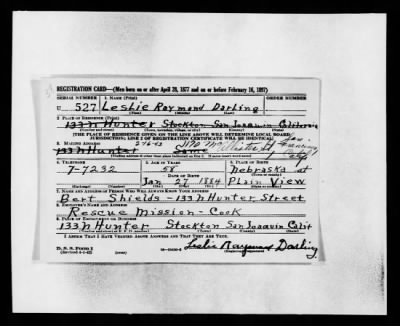 REGISTRATION CARD—(Men born on or after April 28, 1877 and on or before February 16, 1897)
SERIAL NUMBER 1. NAME (Print) ORDER NUMBER
U 527 Leslie Raymond Darling
2. PLACE OF RESIDENCE (Print)
133 N Hunter Stockton San Joaquin California
(Number and street) (Town, township, village, or city) (County) (State)
[THE PLACE OF RESIDENCE GIVEN ON THE LINE ABOVE WILL DETERMINE LOCAL BOARD
JURISDICTION; LINE 2 OF REGISTRATION CERTIFICATE WILL BE IDENTICAL]
3. MAILING ADDRESS
133 N Hunter Same
[Mailing address if other than place indicated on line 2. If same insert word same]
4. TELEPHONE 5. AGE IN YEARS 6. PLACE OF BIRTH
7-7232 58 Nebraska at
DATE OF BIRTH
Jan 27 1884 Plain View
(Mo.) (Day) (Yr.) (State or country)
7. NAME AND ADDRESS OF PERSON WHO WILL ALWAYS KNOW YOUR ADDRESS
Bert Shields - 133 N Hunter Street
8. EMPLOYER'S NAME AND ADDRESS
Rescue Mission - Cook
9. PLACE OF EMPLOYMENT OR BUSINESS
133 N Hunter Stockton San Joaquin Calif
(Number and street or R. F. D. number) (Town) (County) (State)
I AFFIRM THAT I HAVE VERIFIED ABOVE ANSWERS AND THAT THEY ARE TRUE.
D. S. S. Form 1
(Revised 4-1-42) (over)
Leslie Raymond Darling
(Registrant's signature)